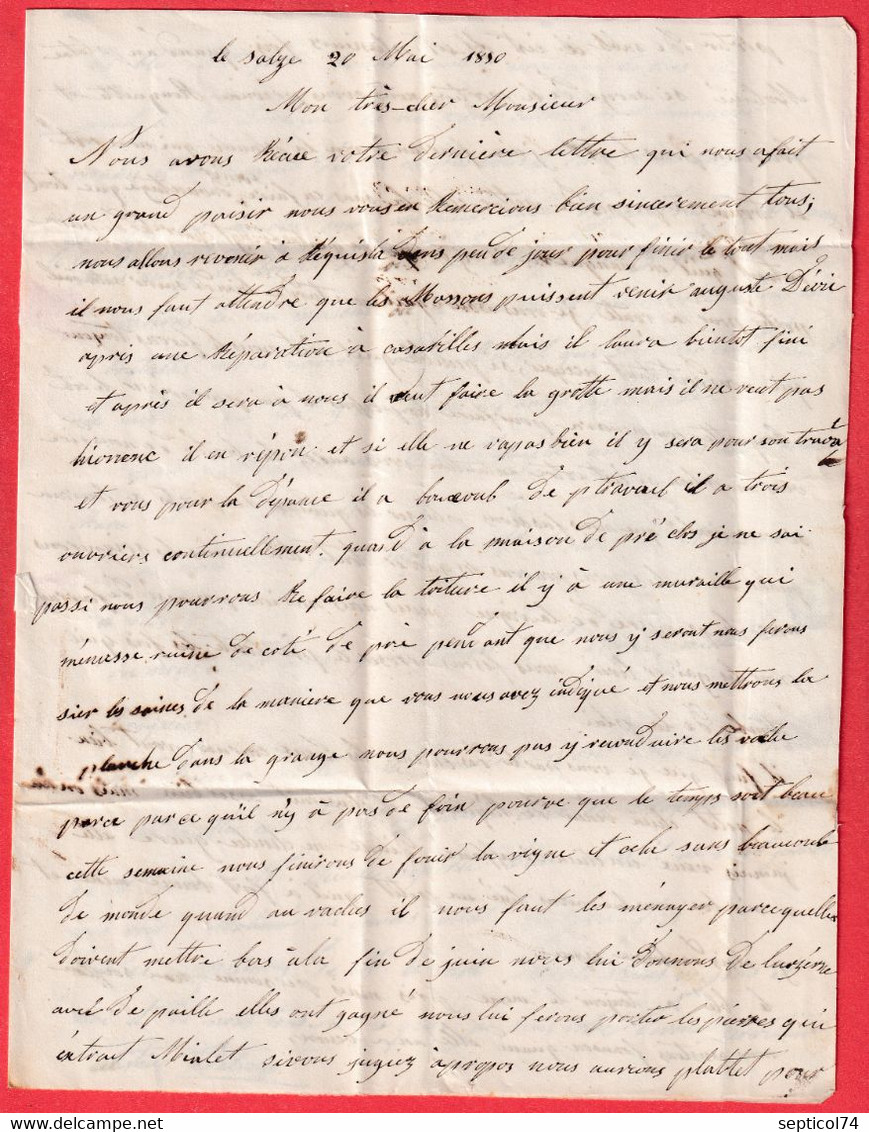 le salze 20 Mai 1850
Mon très-cher Monsieur
Nous avons Récue votre dernière lettre qui nous a fait
un grand paisir nous vous en Remercions bien sincerement tous;
nous allons revenir à Réquista dens peu de jour pour finir le tout mais
il nous faut attendre que les Massons puissent venir auguste
apris une Réparation à casarilles Mais il laura bientot fini
et après il sera à nous il veut faire la grotte mais il ne veut pas
il en répon et si elle ne va pas bien il y sera pour son travà
et vous pour la dépance il a baucoub de ptravail il a trois
ouvriers continuellement. quand à la maison de pré clos je ne sai
passi nous pourrons Refaire la toiture il y à une muraille qui
ménasse ruine de coté de prè pendant que nous y seront nous ferons
sier les de la maniere que vous nous avez indiqué et nous mettrons la
planche dans la grange nous pourrons pas y recondruire les vache
parce parce quil n'y à pas de foin pourvé que le temps soit beau
cette semaine nous finirons de fouir la vigne et cela sans beaucoub
de monde quand au vaches il nous faut les ménager parcequelles
doivent mettre bas à la fin de juin nous lui donnons de luzérne
avec de paille elles ont gagné nous lui ferons porter les pierres qui
éxtrait Mialet sivous jugiez àpropos nous aurions plattet pour
septicol74